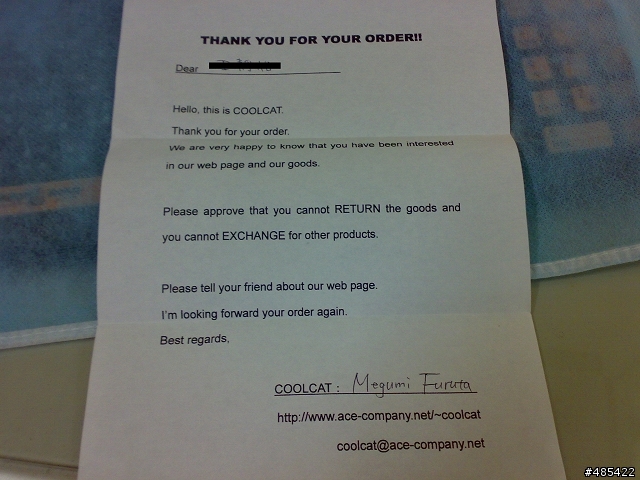 THANK YOU FOR YOUR ORDER!!
Dear
Hello, this is COOLCAT.
Thank you for your order.
We are very happy to know that you have been interested
in our web page and our goods.
Please approve that you cannot RETURN the goods and
you cannot EXCHANGE for other products.
Please tell your friend about our web page.
I'm looking forward your order again.
Best regards,
COOLCAT : Megumi Furuta
http://www.ace-company.net/~coolcat
coolcat@ace-company.net
#485422